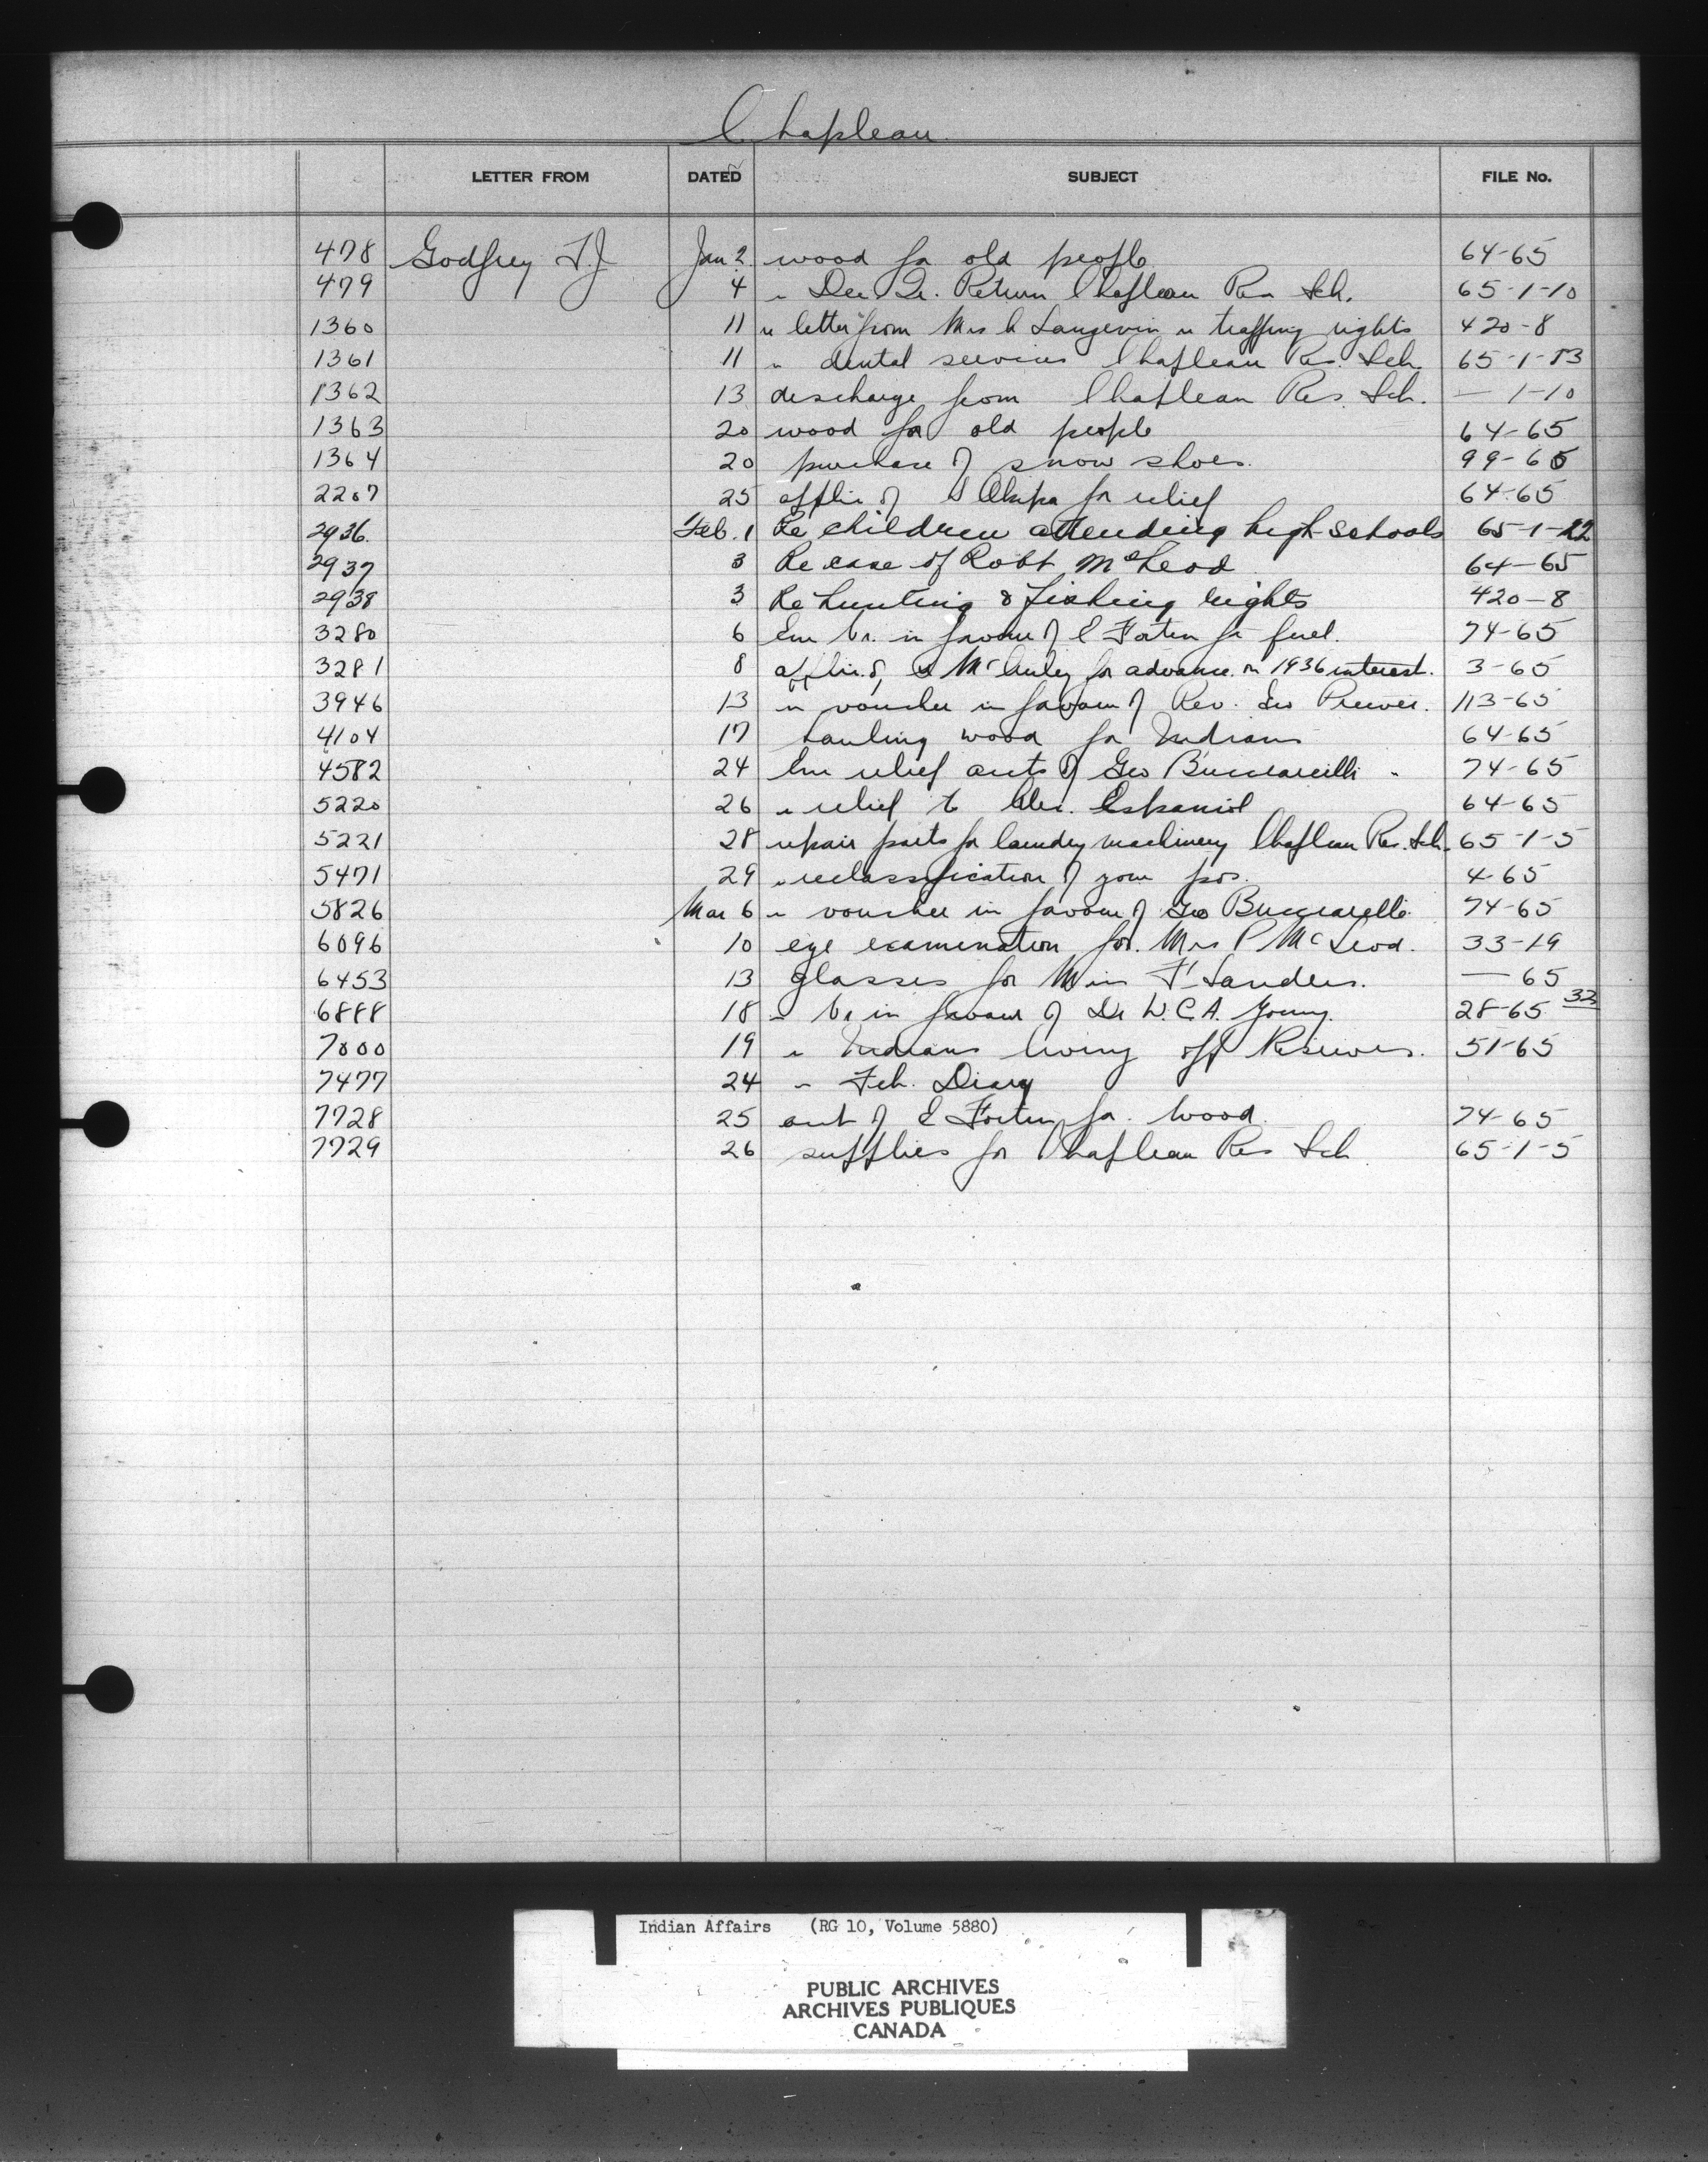 Chapleau
LETTER FROM DATED SUBJECT FILE No.
478 Godfrey T.J Jan 2 wood for old people 64-65
479 4 " Dec Qr. Return Chapleau Res Sch. 65-1-10
1360 11 " letter from Mrs Langevin " trapping rights 420-8
1361 11 " dental services Chapleau Res. Sch. 65-1-13
1362 13 discharge from Chapleau Res. Sch. — 1-10
1363 20 wood for old people 64-65
1364 20 purchase of snow shoes 99-65
2207 25 applin of for relief 64-65
2936. Feb. 1 Re children attending high schools 65-1-22
2937 3 Re case of Robt McLeod 64-65
2938 3 Re hunting & fishing rights 420-8
3280 6 Em Vr. in favour of E Fortin for fuel. 74-65
3281 8 applin. of McAuley for advance on 1936 interest. 3-65
3946 13 " voucher in favour of Rev. Geo Prewer. 113-65
4104 17 hauling wood for Indians 64-65
4582 24 Em relief accts of Geo Bucciarelli 74-65
5220 26 " relief to Alex. Espaniol 64-65
5221 28 repair parts for laundry machinery Chapleau Res. Sch. 65-1-5
5471 29 " reclassification of your pos. 4-65
5826 Mar 6 " voucher in favour of Geo Bucciarelli 74-65
6096 10 eye examination for Mrs P McLeod. 33-19
6453 13 glasses for Miss F Sanders. — 65
6888 18 " Vr in favour of Dr W.C.A. Young. 28-65 32
7000 19 " Indians living off Reserves. 51-65
7477 24 " Feb. Diary
7728 25 acct of E Fortin for wood 74-65
7729 26 supplies for Chapleau Res Sch 65-1-5
Indian Affairs (RG 10, Volume 5880)
PUBLIC ARCHIVES
ARCHIVES PUBLIQUES
CANADA